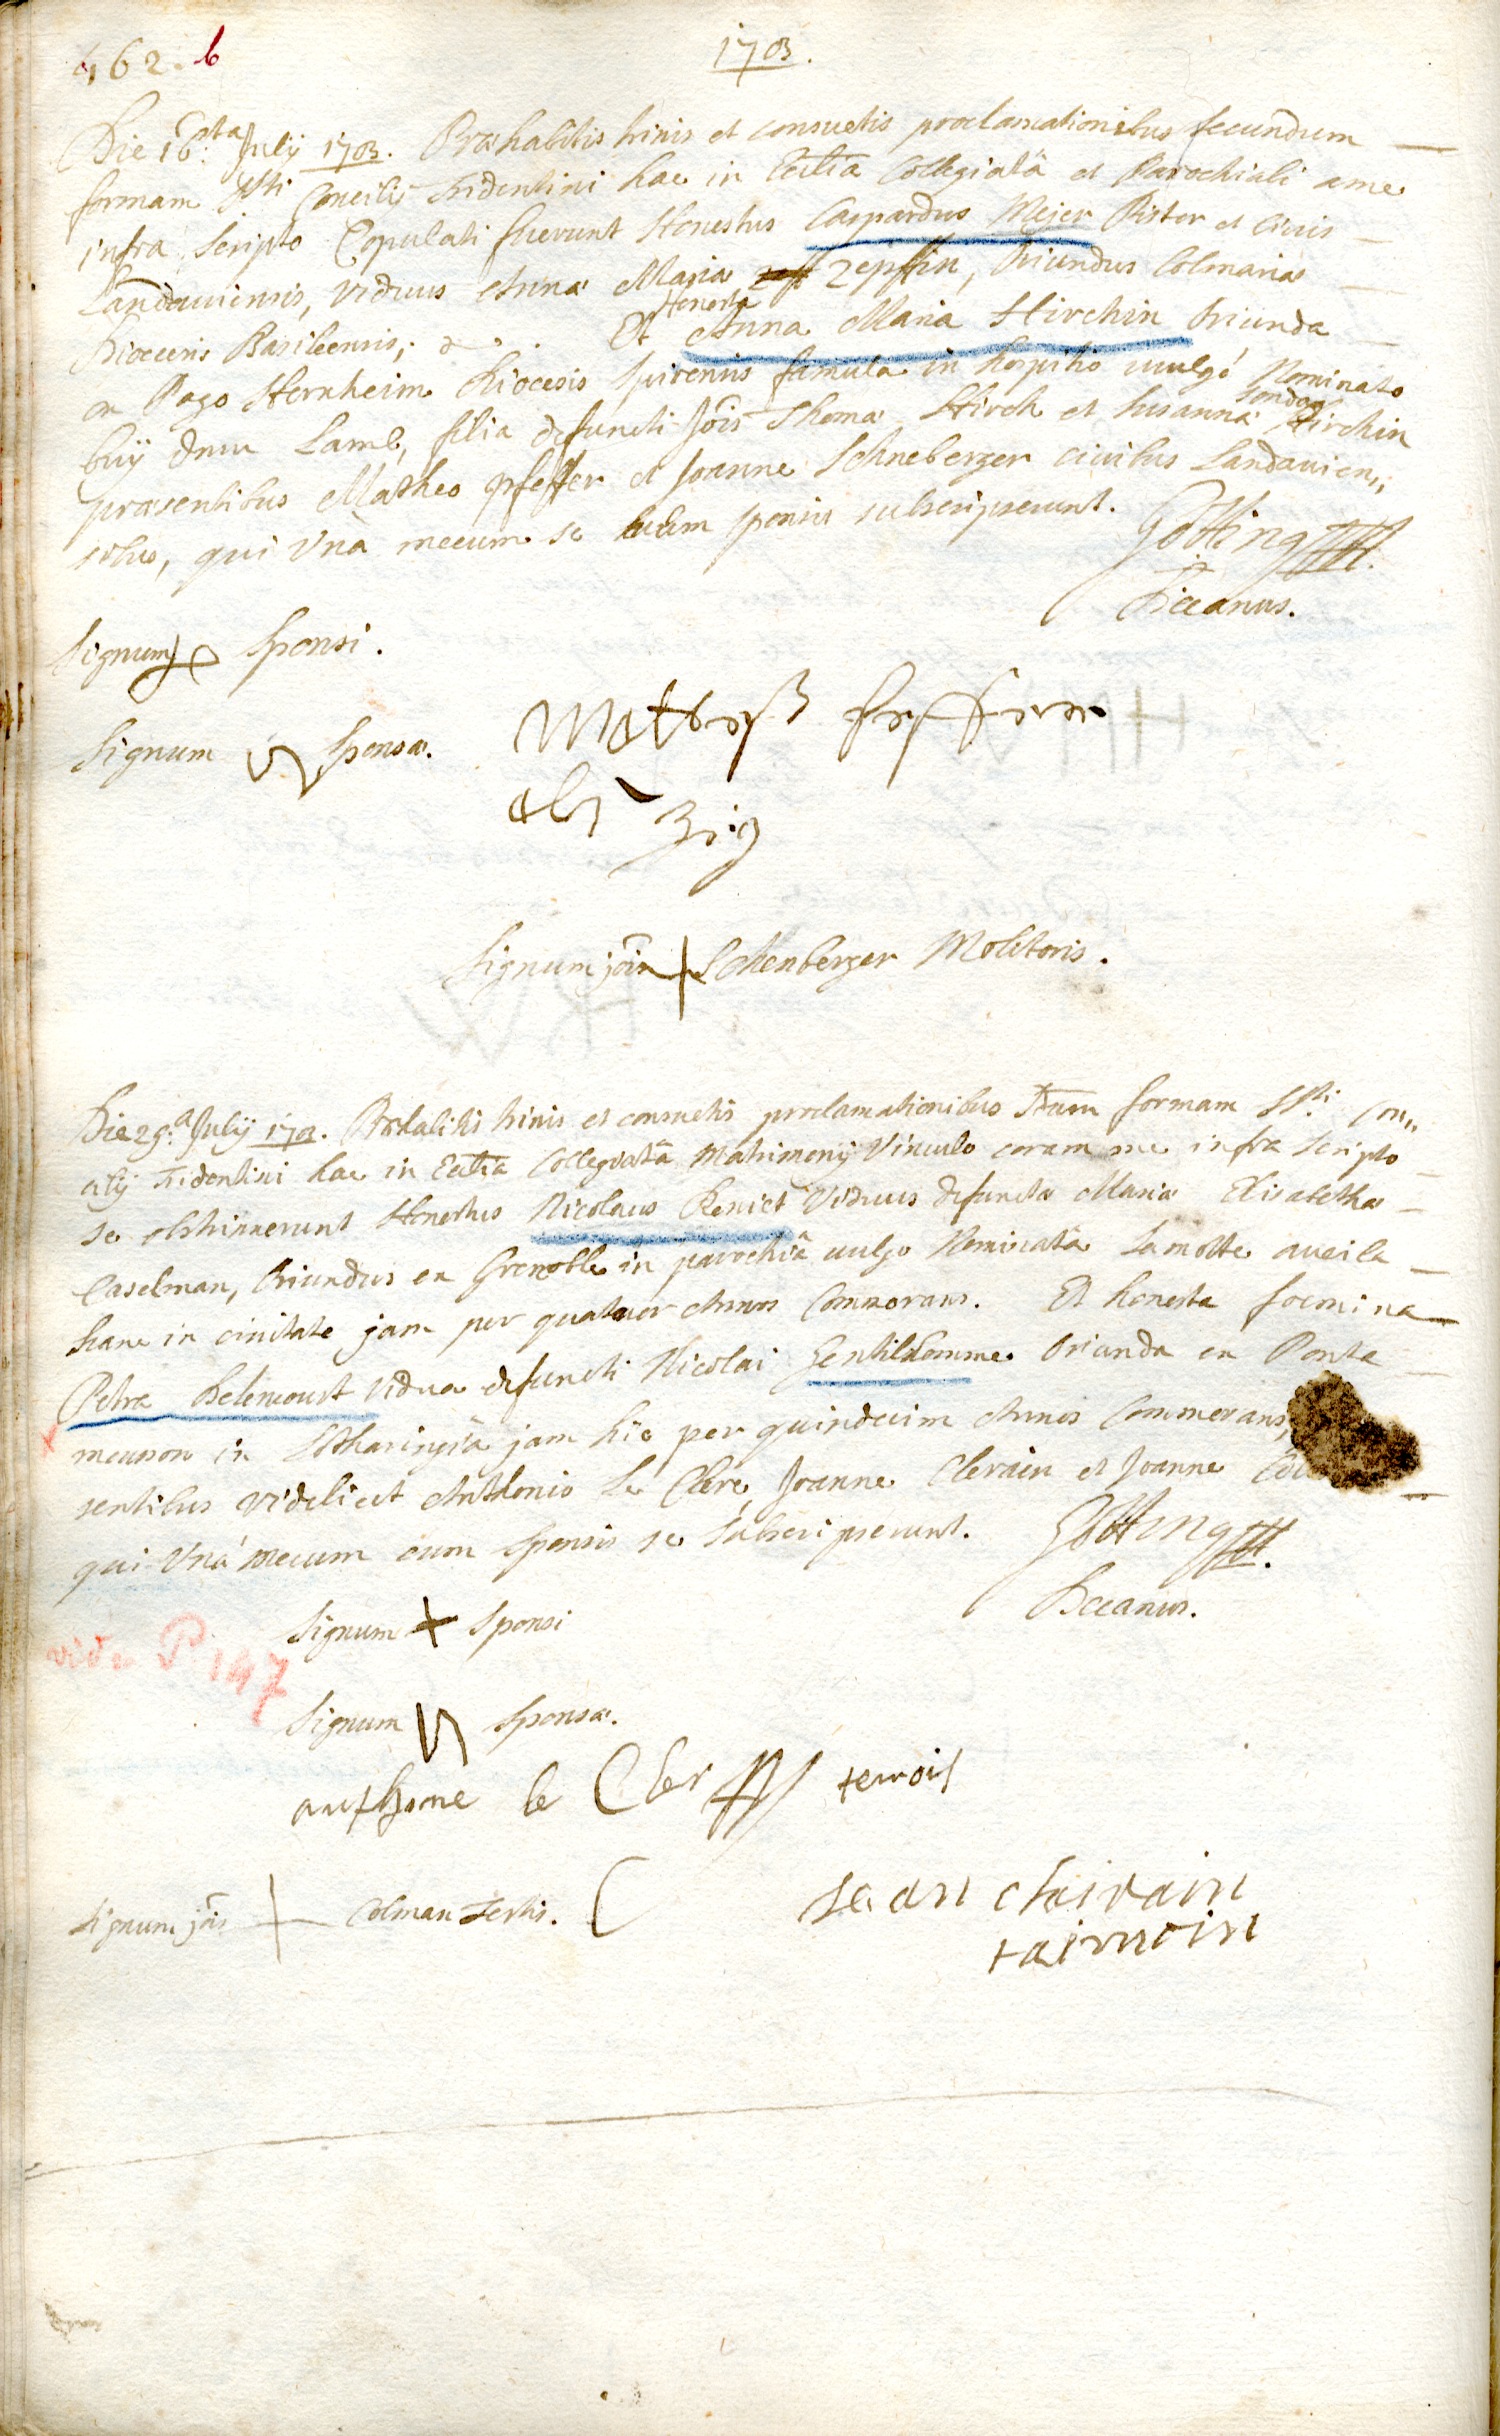 462. b
1703.
Die 16.ta July 1703. Præhabitis trinis et consuetis proclamationibus secundum
formam SSti Concilii Tridentini hac in Eccliã Collegiatâ et Parochiali a me
infra Scripto Copulati fuerunt Honestus Caspardus Meier Pistor et Civis
Landaviensis, viduus Annæ Mariæ Zepffin, Oriundus Colmariæ
Diocecis Basileensis, Et Honesta Anna Maria Hirchin Oriunda
ex Pago Hernheim Diocesis Spirensis famula in hospitio vulgó Nominato
bey dem Lamb, filia defuncti Jois Thomæ Hirch et Susannæ Hirchin
præsentibus Matheo Pfeffer et Joanne Schneberger civibus Landavien,,
sibus, qui Vnà mecum se cum sponsis subscripserunt.
Götting
Decanus.
Signum sponsi.
Signum sponsæ.
Matheyß feffer
alß Zeig
Signum jois + Schenberger Molitoris.
Die 29.a July 1703. Præhabitis trinis et consuetis proclamationibus scdum formam SSti Con,,
cilij Tridentini hac in Eccliâ Collegiatâ Matrimonij Vinculo coram me infra scripto
se obstrinxerunt Honestus Nicolaus Reniet Viduus defunctæ Mariæ Elisabethæ
Caselman, Oriundus ex Grenoble in parochiâ vulgo Nominatâ Lamotte aveila
hanc in civitate jam per quatuor Annos Commorans. Et honesta foemina
Petra Belencourt vidua defuncti Nicolai Gentilhomme Orianda ex Ponte
mousson in Lotharingiâ jam hic per quindecim Annos Commorans,
sentibus videlicet Anthonio Le Clere, Joanne Clerain et Joanne
qui Vná mecum cum sponsis se subscripserunt. Götting
Decanus.
Signum + Sponsi
vide P. 147
Signum sponsæ.
anthone le Cler temois
Signum jois + Colman Testis.
Jean clairain
taimoin